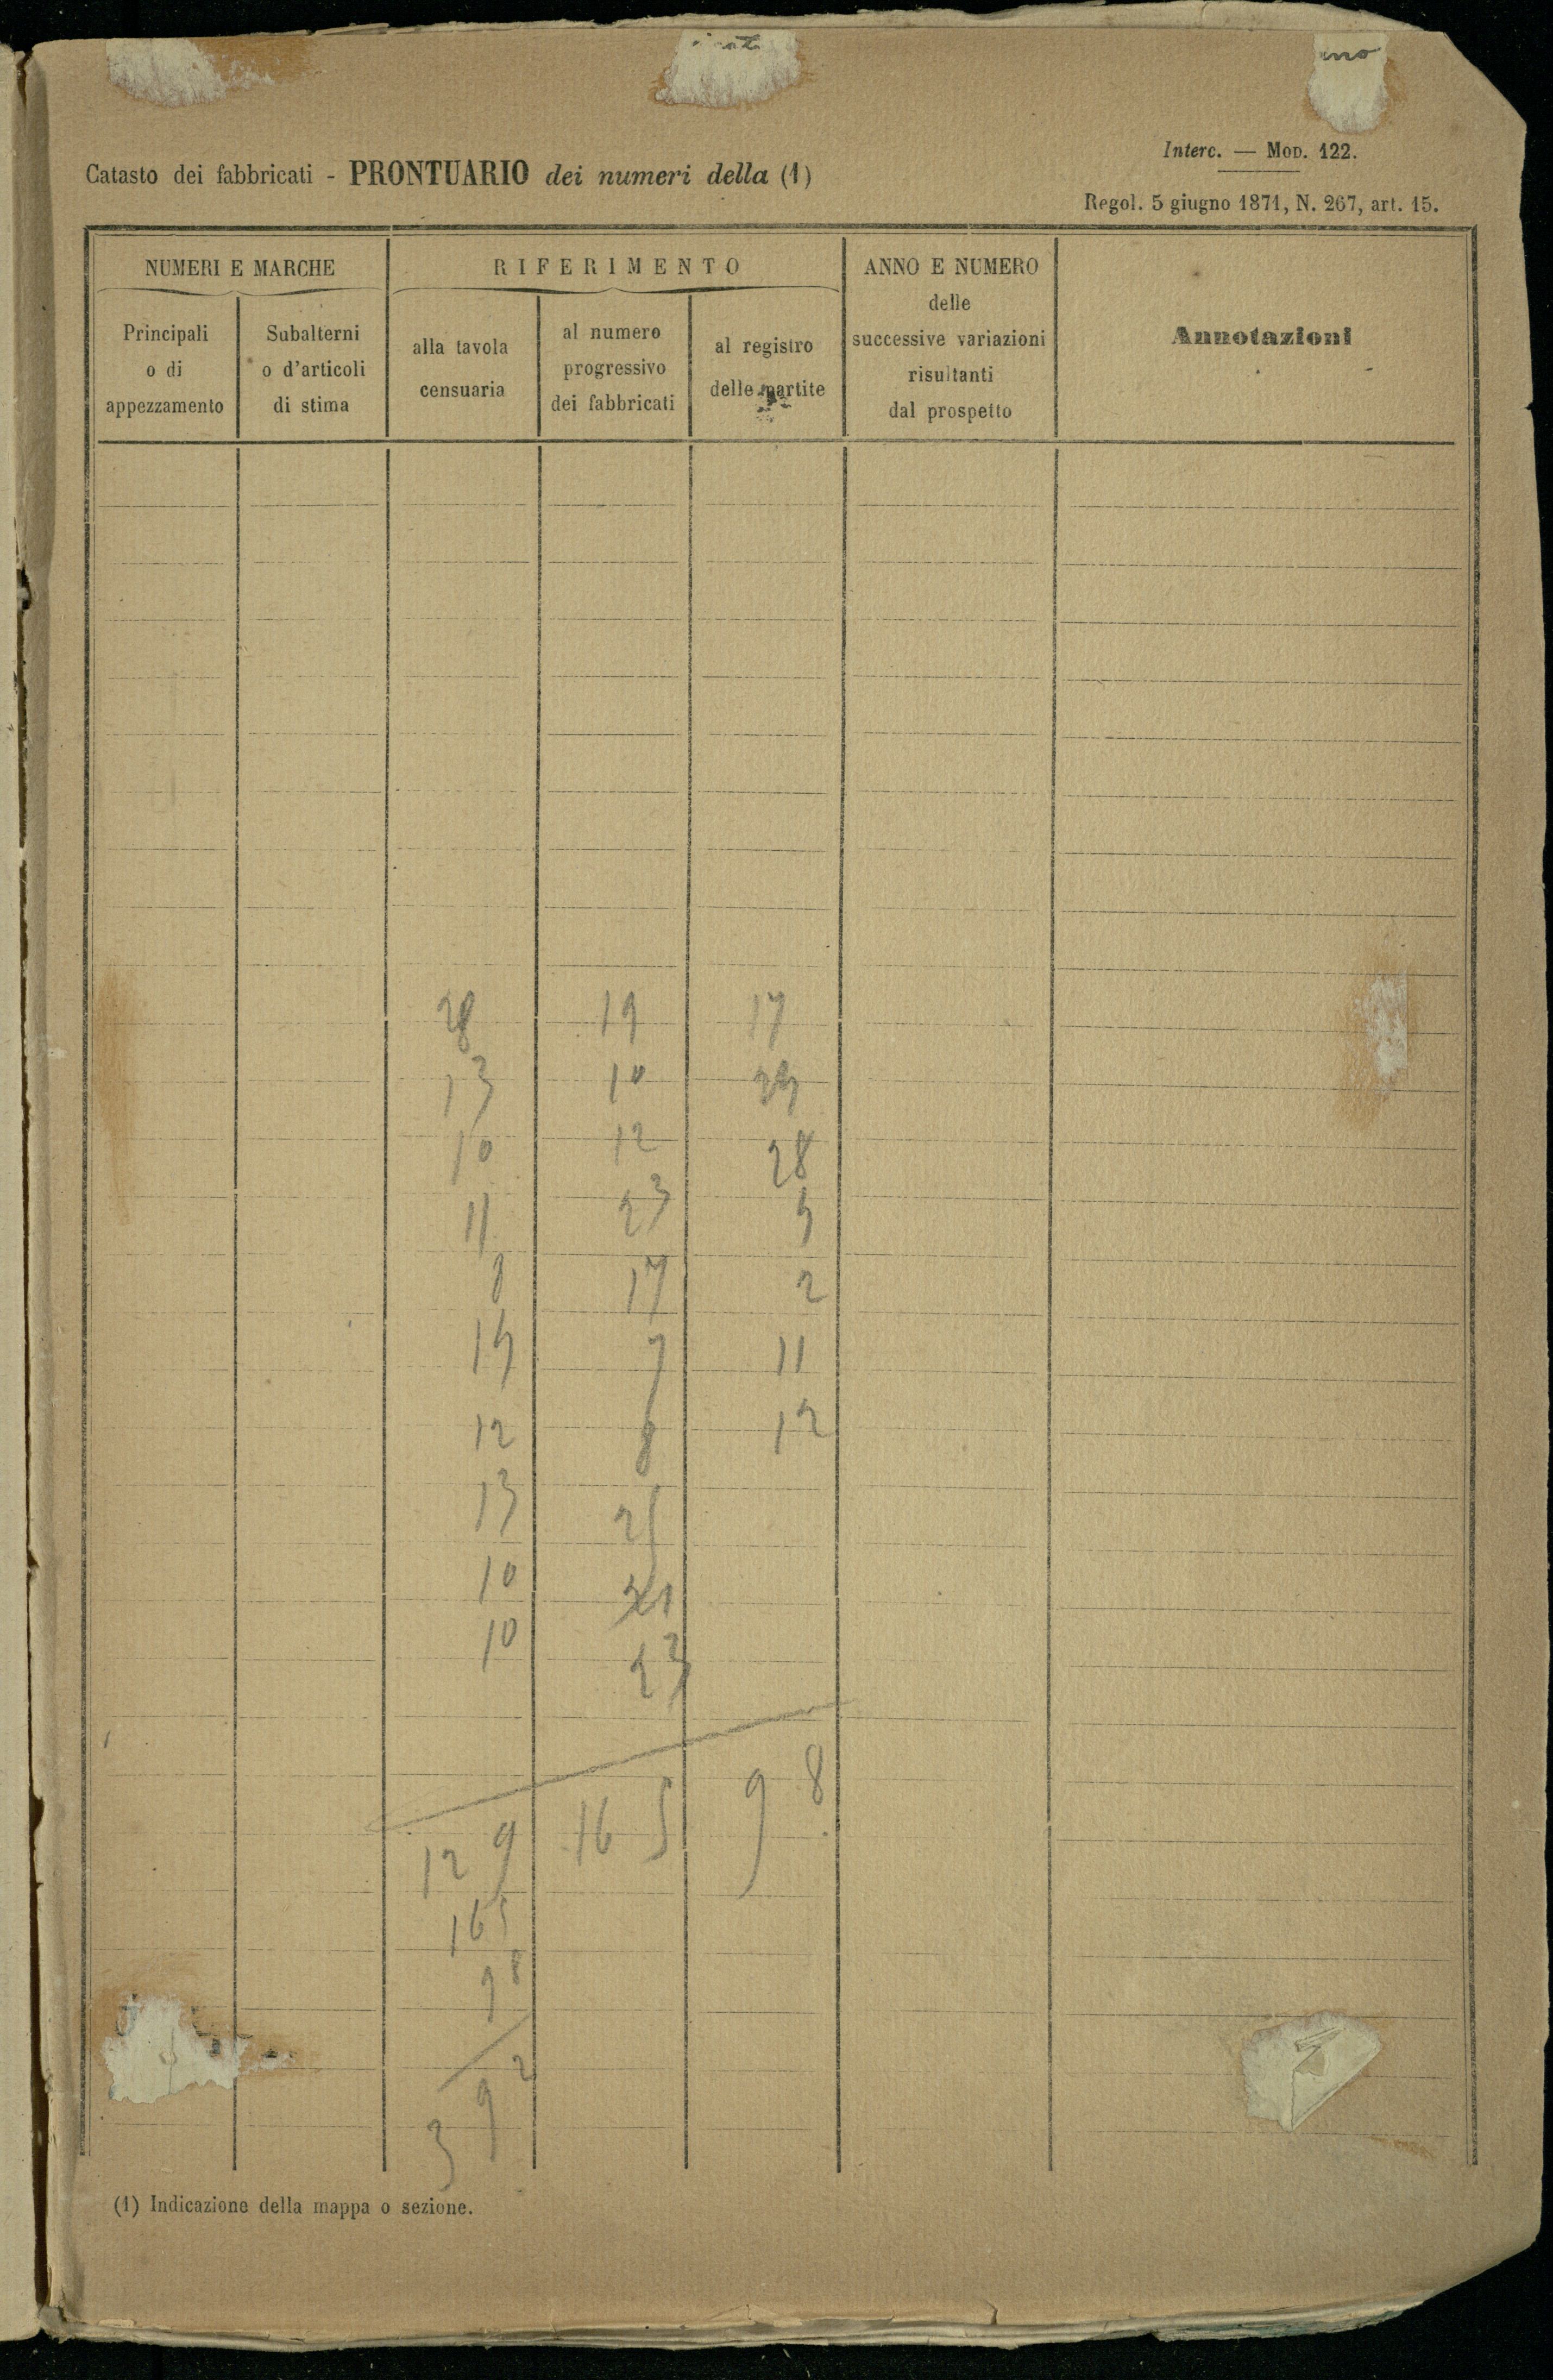 Catasto dei fabbricati - PRONTUARIO dei numeri della (1)
Interc. — Mod. 122.
Regol. 5 giugno 1871, N. 267, art. 15.
NUMERI E MARCHE
Principali
o di
appezzamento
Subalterni
o d'articoli
di stima
RIFERIMENTO
alla tavola
censuaria
al numero
progressivo
dei fabbricati
al registro
delle partite
ANNO E NUMERO
delle
successive variazioni
risultanti
dal prospetto
Annotazioni
28 19 17
13 10 24
10 12 28
11 23 4
8 17 2
14 7 11
12 8 12
13 25
10 21
10 23
129 165 98
165
98
392
(1) Indicazione della mappa o sezione.